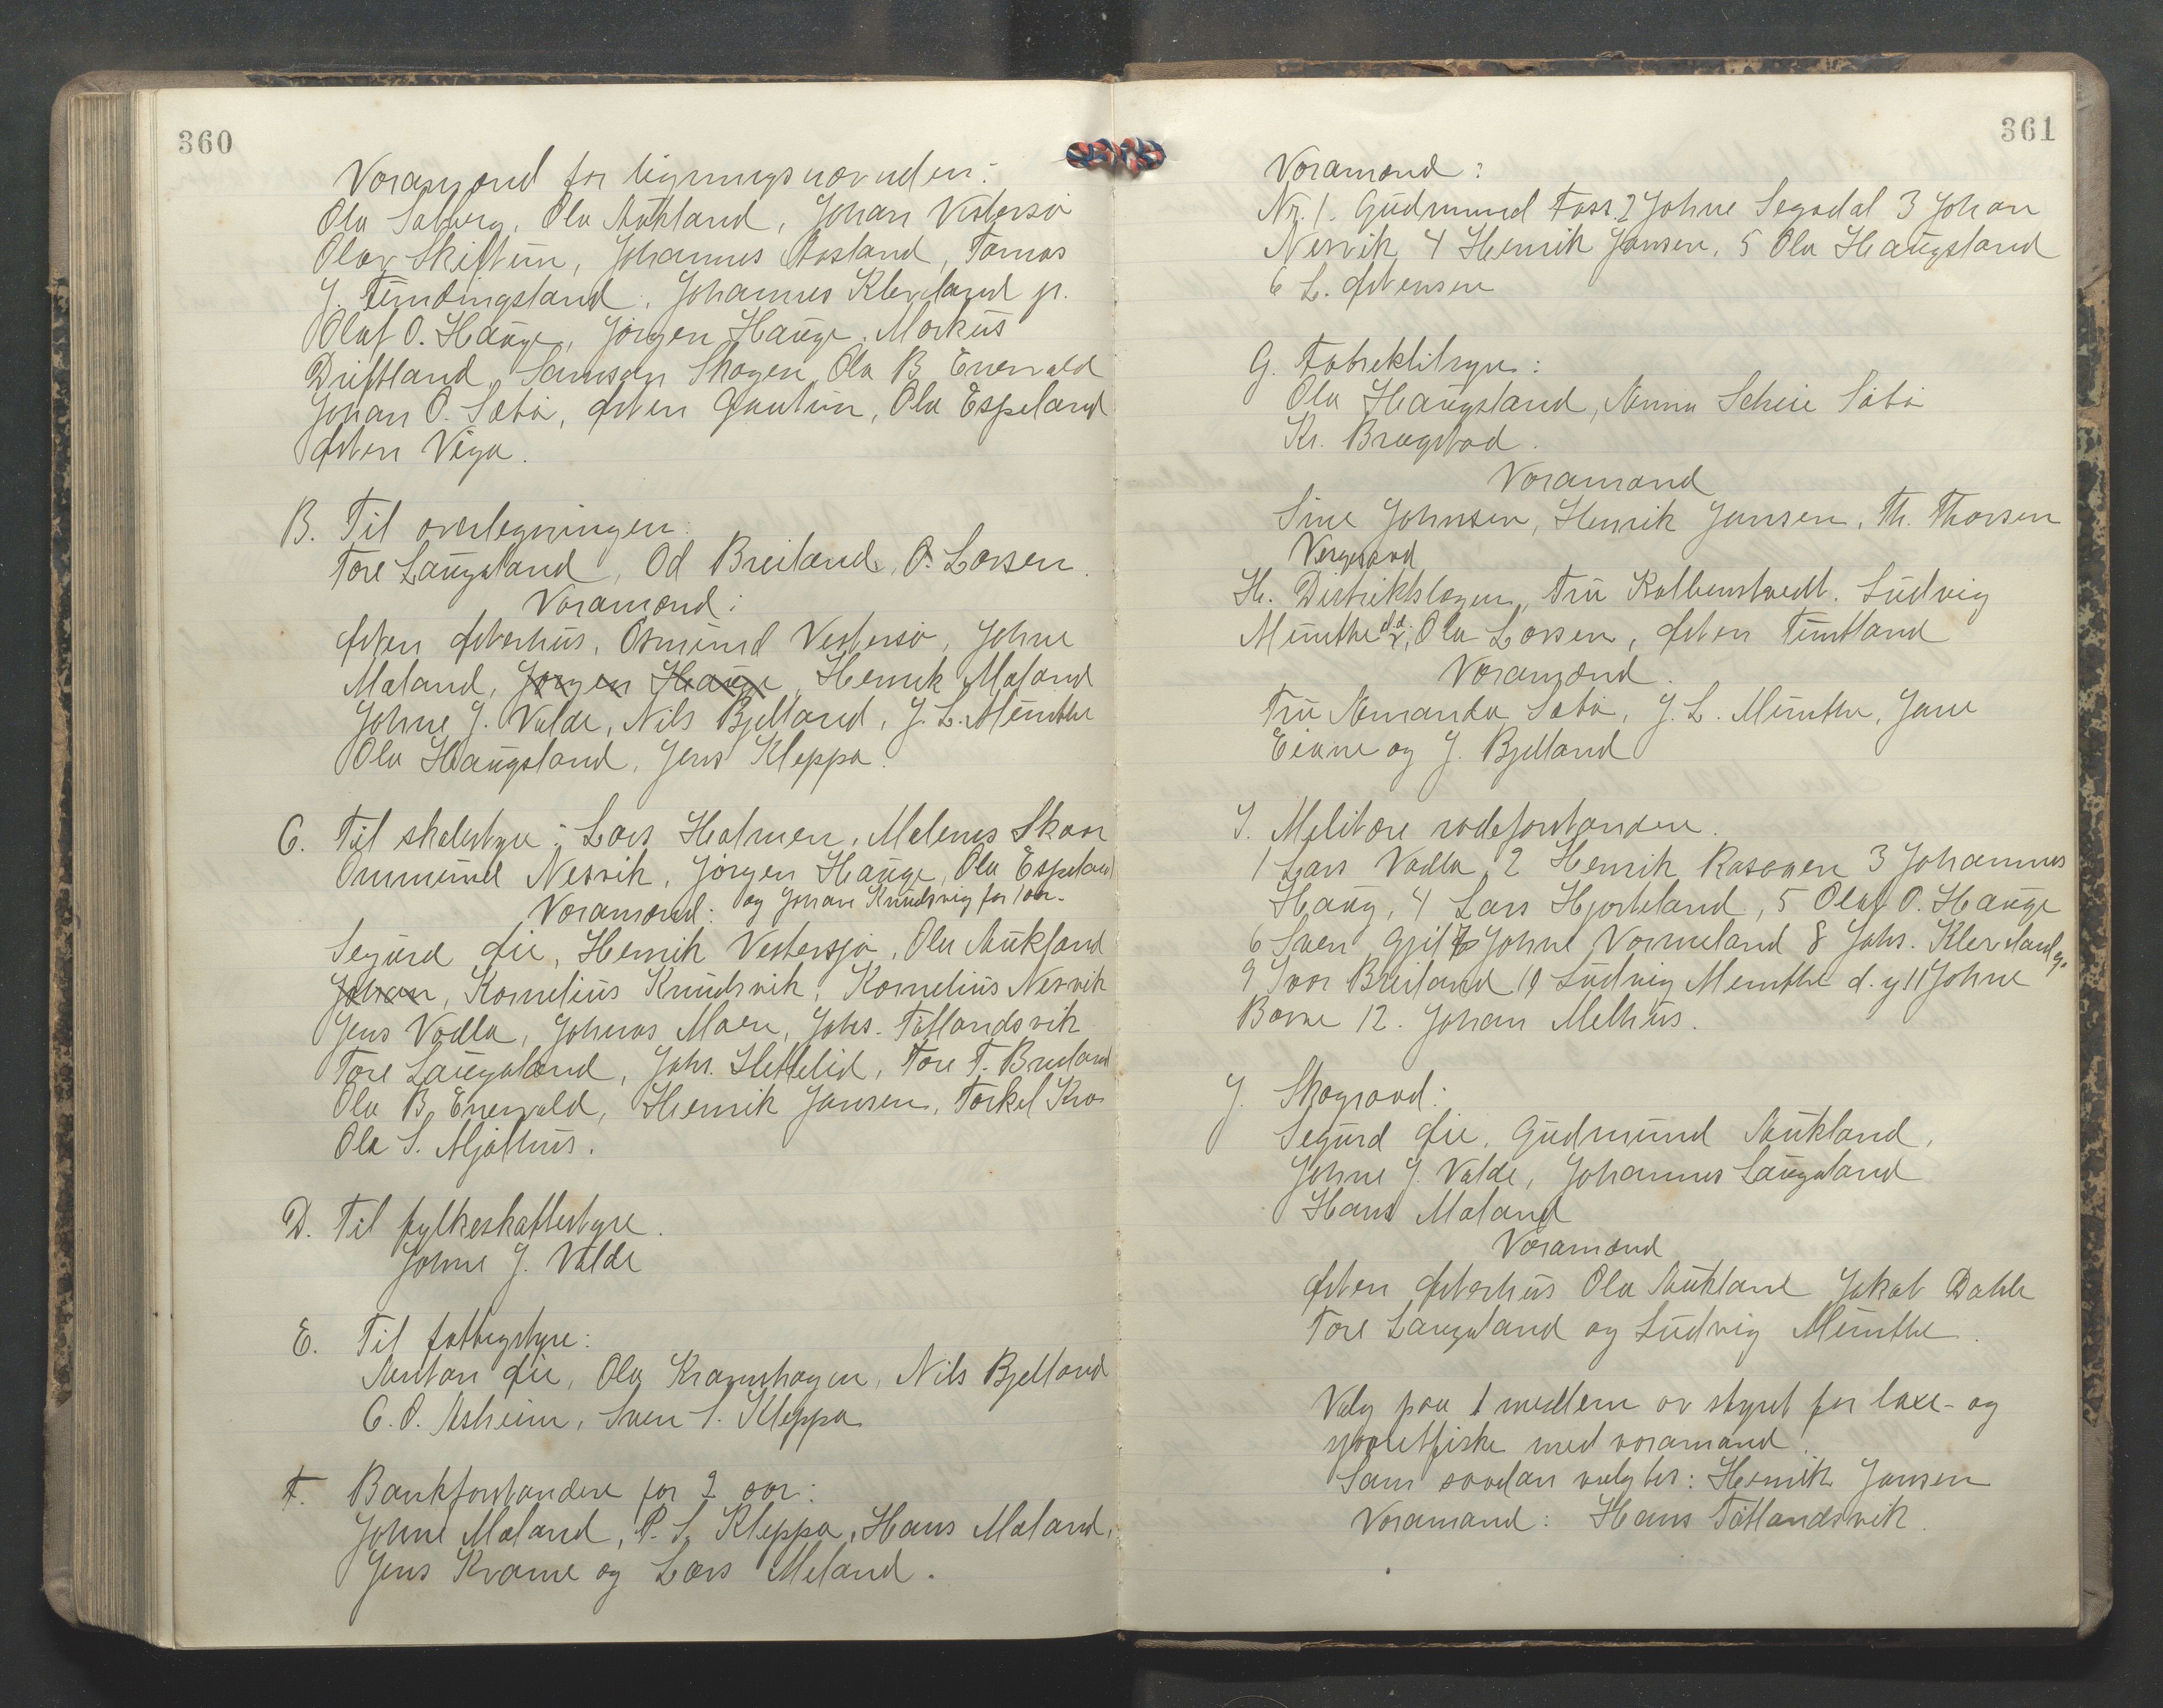 360
Varamænd for ligningsnævnden:
Ola Søberg, Ola Aukland, Johan Vestersjø
Olav Skiftun, Johannes Aasland, Tomas
J. Tundingsland, Johannes Kleveland jr.
Oluf O. Hauge, Jørgen Hauge, Markus
Driftland, Samson Skogen, Ola B. Enervald
Johan O. Sæbø, Østen Gautun, Ola Espeland
Østen Viga.
B. Til overlegningen:
Tore Laugaland, Od Breiland, O. Larsen.
Varamænd:
Østen Østerhus, Osmund Vestersø, Johne
Mæland, Jørgen Hauge, Henrik Mæland
Johne J. Valde, Nils Bjelland, J. L. Munthe
Ola Haugsland, Jens Kleppa.
C. Til skolestyre: Lars Halmen, Malenus Skaar
Ommund Nesvik, Jørgen Hauge, Ola Espeland
Varamænd: og Johan Knudsvig for 1 aar.
Segurd Øie, Henrik Vestersjø, Ola Aukland
Johan, Kornelius Knudsvik, Kornelius Nesvik
Jens Vadla, Johnas Moen, Johs. Tøtlandsvik
Tore Laugaland, Johs. Hettelid, Tore T. Breiland
Ola B. Enervald, Henrik Jansen, Torkel Kro
Ola S. Mjølhus.
D. Til fylkeskattestyre.
Johne J. Valde
E. Til fattigstyre:
Anton Øie, Ola Kramshagen, Nils Bjelland
C. O. Asheim, Sven S. Kleppa
F. Bankforstandere for 2 aar:
Johne Mæland, P. S. Kleppa, Hans Mæland,
Jens Krame og Lars Meland.
361
Varamænd:
Nr. 1. Gudmund Foss. 2 Johne Segadal 3 Johan
Nesvik 4 Henrik Jansen, 5 Ola Haugsland
6 L. Østensen
G. Fabriktilsyn:
Ola Haugsland, Anna Scheie Sæbø
Kr. Bragstad.
Varamænd
Sine Johnsen, Henrik Jansen, Th. Thorsen
Vergeraad
H. Distriktslægen, Fru Kolbenstvedt. Ludvig
Munthe d.æ., Ola Larsen, Østen Tuntland
Varamænd.
Fru Amanda Sæbø, J. L. Munthe, Jane
Eiane og J. Bjelland
I. Militære rodeforstandere.
1 Lars Vadla 2 Henrik Rasagen 3 Johannes
Haug, 4 Lars Hjorteland, 5 Oluf O. Hauge
6 Sven Gjil 7 Johne Vormeland 8 Johs. Kleveland
9 Ivar Breiland 10 Ludvig Munthe d. y 11 Johne
Barne 12. Johan Melhus.
J. Skograad:
Segurd Øie, Gudmund Aukland,
Johne J. Valde, Johannes Laugaland
Hans Mæland
Varamænd
Østen Østerhus Ola Aukland Jakob Dahle
Tore Laugaland og Ludvig Munthe.
Valg paa 1 medlem av styret for laxe- og
sjøøretfiske med varamand.
Som saadan valgtes: Henrik Jansen
Varamand: Hans Tøtlandsvik.